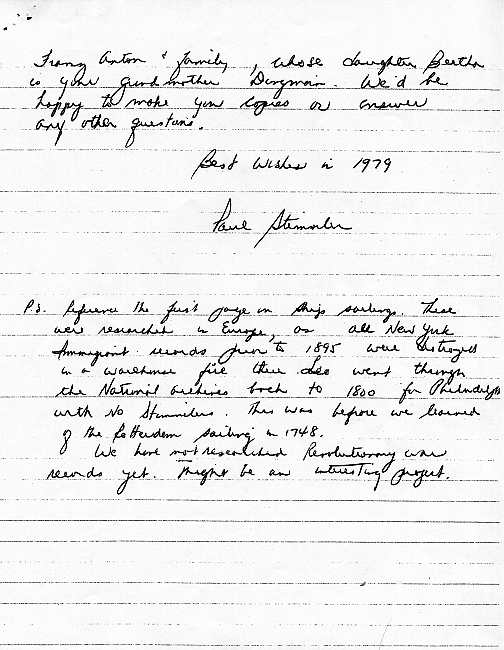 Franz Anton & family, whose daughter Bertha
is your grandmother Dingman. We'd be
happy to make you copies or answer
any other questions.
Best Wishes in 1979
Paul Stemmler
P.S. Reference the first page on ships sailings. These
were researched in Europe, as all New York
Immigrant records prior to 1895 were destroyed
in a warehouse fire there. Leo went through
the National archives back to 1800 for Philadelphia
with no Stemmlers. This was before we learned
of the Rotterdam sailing in 1748.
We have not researched Revolutionary war
records yet. Might be an interesting project.